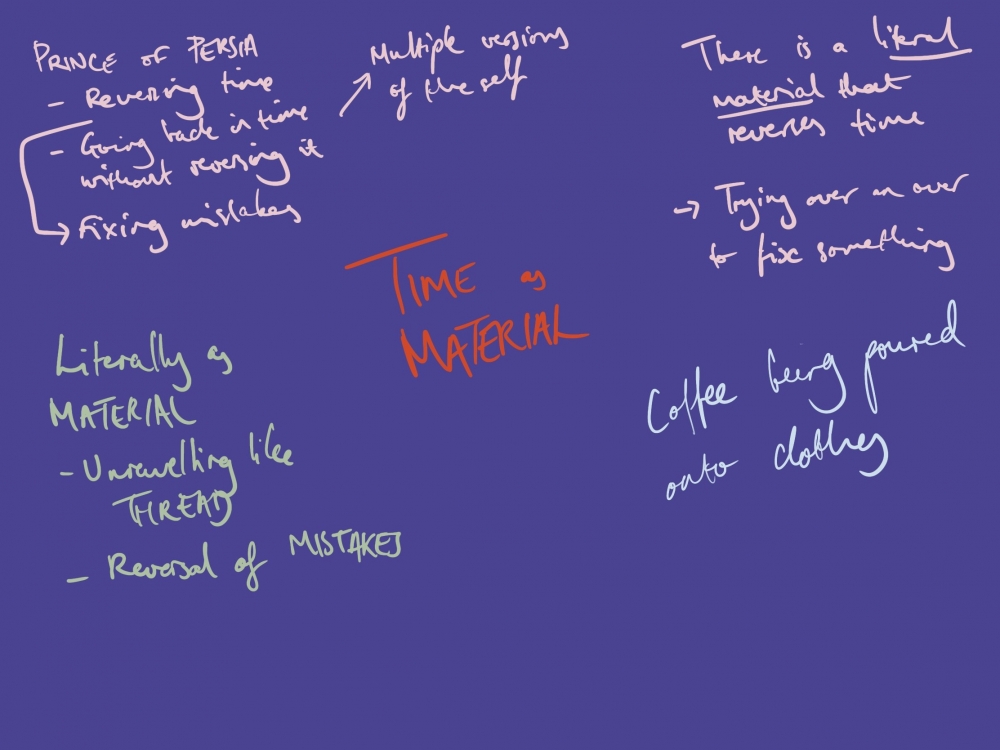 PRINCE OF PERSIA
- Reversing time
- Going back in time
without reversing it
→ Fixing mistakes
Multiple versions
of the self
There is a literal
material that
reverses time
→ Trying over an over
to fix something
TIME as
MATERIAL
Literally as
MATERIAL
- Unravelling like
THREAD
- Reversal of MISTAKES
Coffee being poured
onto clothes